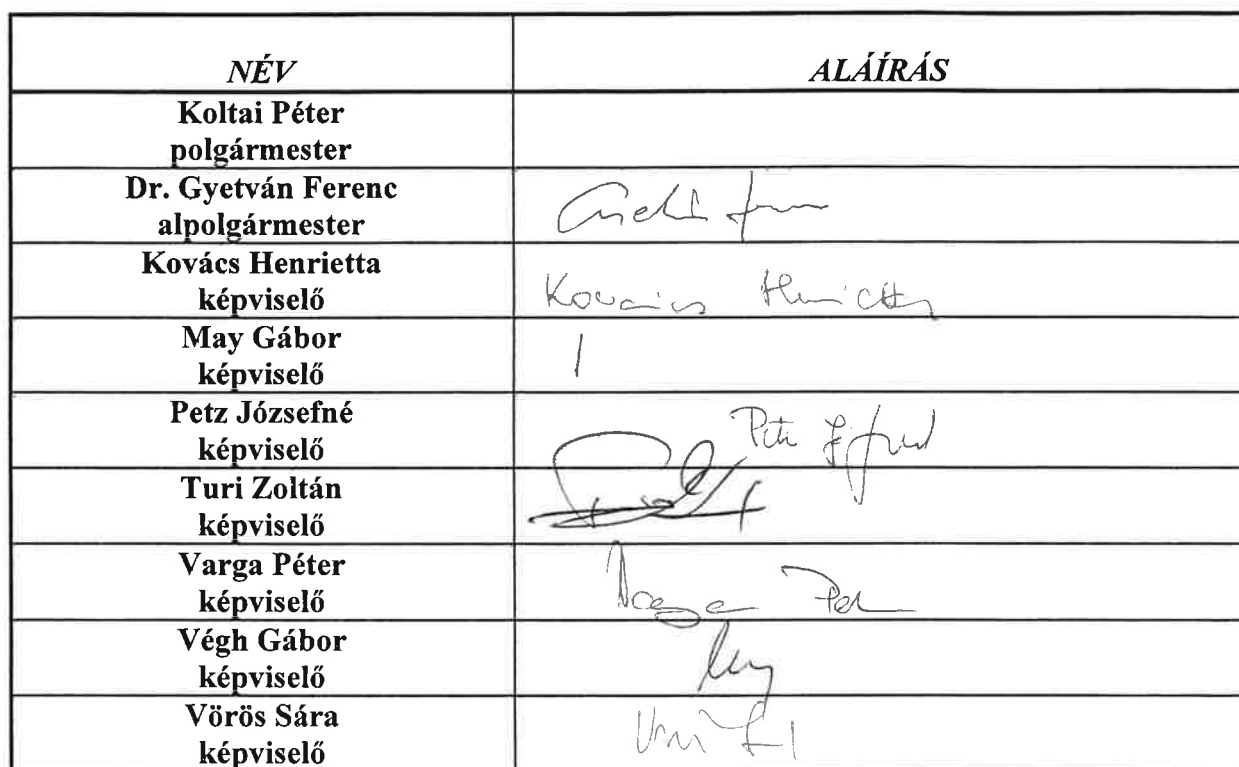 NÉV ALÁÍRÁS
Koltai Péter
polgármester
Dr. Gyetván Ferenc
alpolgármester
Kovács Henrietta
képviselő
Kovács Henrietta
May Gábor
képviselő
Petz Józsefné
képviselő
Turi Zoltán
képviselő
Varga Péter
képviselő
Varga Péter
Végh Gábor
képviselő
Vörös Sára
képviselő